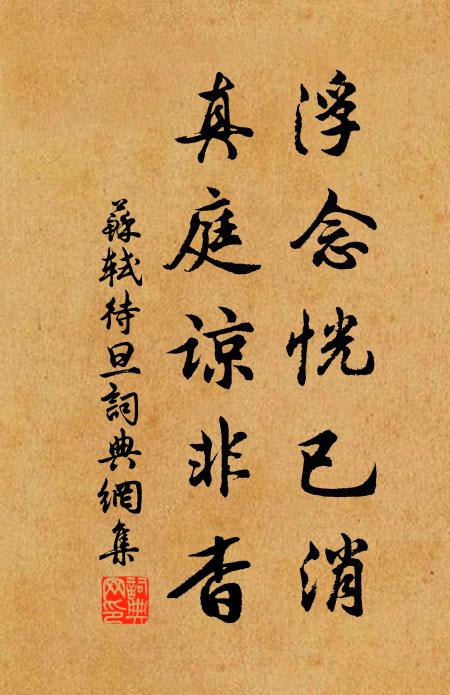 浮念恍已消
真庭諒非杳
蘇軾待旦詞典網集
詞典
网印